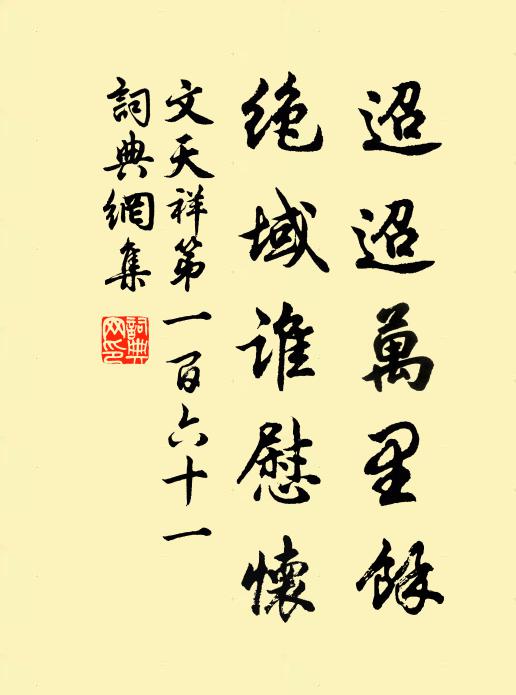 迢迢萬里餘
絶域誰慰懷
文天祥第一百六十一
詞典網集
詞典网印